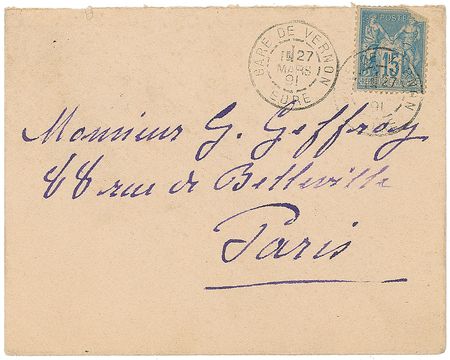 GARE DE VERNON
1E 27
MARS
91
EURE
POSTE
15
27
91
Monsieur G. Geffroy
88 rue de Belleville
Paris